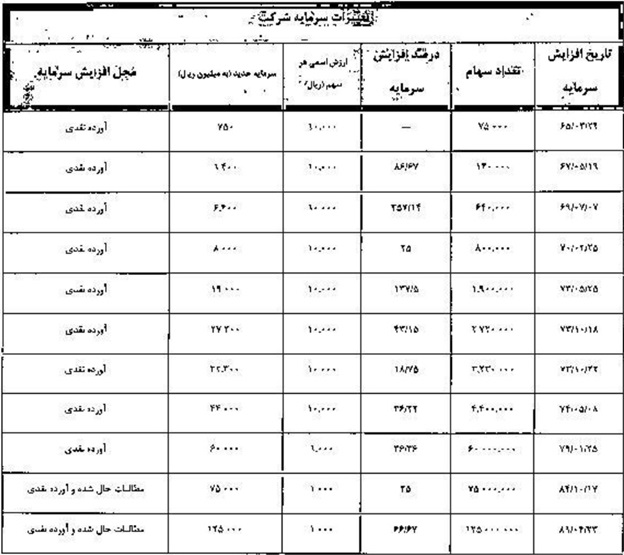 تغییرات سرمایه شرکت
تاریخ افزایش سرمایه | تعداد سهام | درصد افزایش سرمایه | ارزش اسمی هر سهم (ریال) | سرمایه جدید (به میلیون ریال) | محل افزایش سرمایه
۶۵/۰۳/۲۴ | ۷۵۰۰۰ | — | ۱۰،۰۰۰ | ۷۵۰ | آورده نقدی
۶۷/۰۵/۱۹ | ۱۴۰۰۰۰ | ۸۶/۶۷ | ۱۰،۰۰۰ | ۱،۴۰۰ | آورده نقدی
۶۹/۰۷/۰۷ | ۶۴۰،۰۰۰ | ۳۵۷/۱۴ | ۱۰،۰۰۰ | ۶،۴۰۰ | آورده نقدی
۷۰/۰۲/۲۵ | ۸۰۰،۰۰۰ | ۲۵ | ۱۰،۰۰۰ | ۸۰۰۰ | آورده نقدی
۷۳/۰۵/۲۵ | ۱،۹۰۰،۰۰۰ | ۱۳۷/۵ | ۱۰،۰۰۰ | ۱۹۰۰۰ | آورده نقدی
۷۳/۱۰/۱۸ | ۲،۷۲۰،۰۰۰ | ۴۳/۱۵ | ۱۰،۰۰۰ | ۲۷،۲۰۰ | آورده نقدی
۷۳/۱۰/۲۲ | ۳،۲۳۰،۰۰۰ | ۱۸/۷۵ | ۱۰،۰۰۰ | ۳۲،۳۰۰ | آورده نقدی
۷۴/۰۵/۰۸ | ۴،۴۰۰،۰۰۰ | ۳۶/۲۲ | ۱۰،۰۰۰ | ۴۴۰۰۰ | آورده نقدی
۷۹/۰۱/۲۵ | ۶۰،۰۰۰،۰۰۰ | ۳۶/۳۶ | ۱،۰۰۰ | ۶۰۰۰۰ | آورده نقدی
۸۴/۱۰/۱۷ | ۷۵،۰۰۰،۰۰۰ | ۲۵ | ۱۰۰۰ | ۷۵۰۰۰ | مطالبات حال شده و آورده نقدی
۸۹/۰۴/۲۳ | ۱۲۵،۰۰۰،۰۰۰ | ۶۶/۶۷ | ۱۰۰۰ | ۱۲۵۰۰۰ | مطالبات حال شده و آورده نقدی